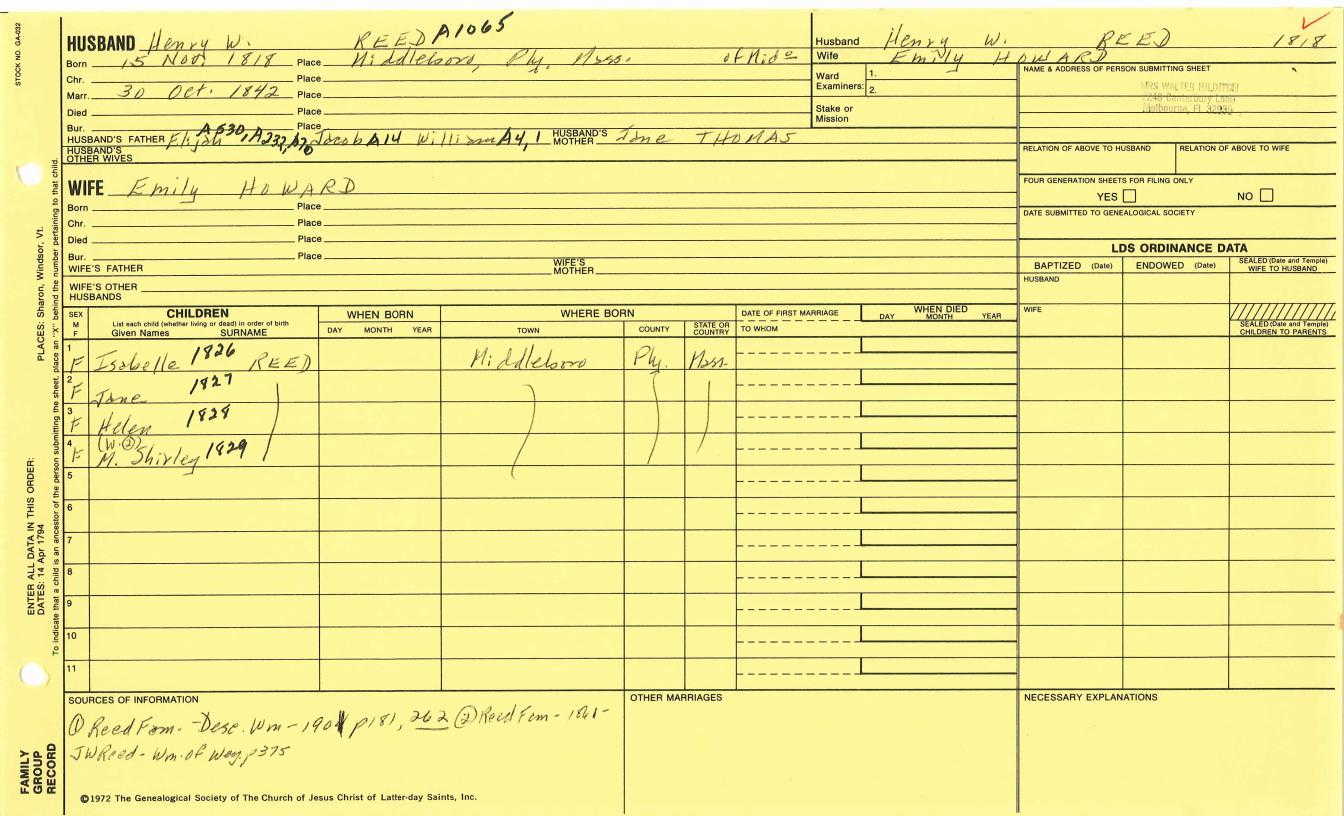 STOCK NO. GA-032
HUSBAND Henry W. REED A1065
Born 15 Nov. 1818 Place Middleboro, Ply. Mass. of Mid
Chr. Place
Marr. 30 Oct. 1842 Place
Died Place
Bur. Place
HUSBAND'S FATHER Elijah A530, A232, A70 Jacob A14 William A4, 1 HUSBAND'S MOTHER Jane THOMAS
HUSBAND'S OTHER WIVES
WIFE Emily HOWARD
Born Place
Chr. Place
Died Place
Bur. Place
WIFE'S FATHER WIFE'S MOTHER
WIFE'S OTHER HUSBANDS
Husband Henry W. REED 1818
Wife Emily HOWARD
Ward Examiners: 1.
2.
Stake or Mission
NAME & ADDRESS OF PERSON SUBMITTING SHEET
MRS WALTER
Canterbury Lane
Melbourne, FL
RELATION OF ABOVE TO HUSBAND RELATION OF ABOVE TO WIFE
FOUR GENERATION SHEETS FOR FILING ONLY
YES NO
DATE SUBMITTED TO GENEALOGICAL SOCIETY
LDS ORDINANCE DATA
BAPTIZED (Date) ENDOWED (Date) SEALED (Date and Temple) WIFE TO HUSBAND
HUSBAND
WIFE
SEALED (Date and Temple) CHILDREN TO PARENTS
SEX M F
CHILDREN
List each child (whether living or dead) in order of birth
Given Names SURNAME
WHEN BORN
DAY MONTH YEAR
WHERE BORN
TOWN COUNTY STATE OR COUNTRY
DATE OF FIRST MARRIAGE
TO WHOM
WHEN DIED
DAY MONTH YEAR
1 F Isabelle 1826 REED Middleboro Ply. Mass.
2 F Jane 1827
3 F Helen 1828
4 F (W. ②) M. Shirley 1829
5
6
7
8
9
10
11
SOURCES OF INFORMATION
① Reed Fam. - Desc. Wm - 1901 p181, 262 ② Reed Fam - 1861 -
JW Reed - Wm. of Wey. p375
OTHER MARRIAGES
NECESSARY EXPLANATIONS
©1972 The Genealogical Society of The Church of Jesus Christ of Latter-day Saints, Inc.
PLACES: Sharon, Windsor, Vt.
ENTER ALL DATA IN THIS ORDER:
DATES: 14 Apr 1794
To indicate that a child is an ancestor of the person submitting the sheet, place an "X" behind the number pertaining to that child.
FAMILY
GROUP
RECORD